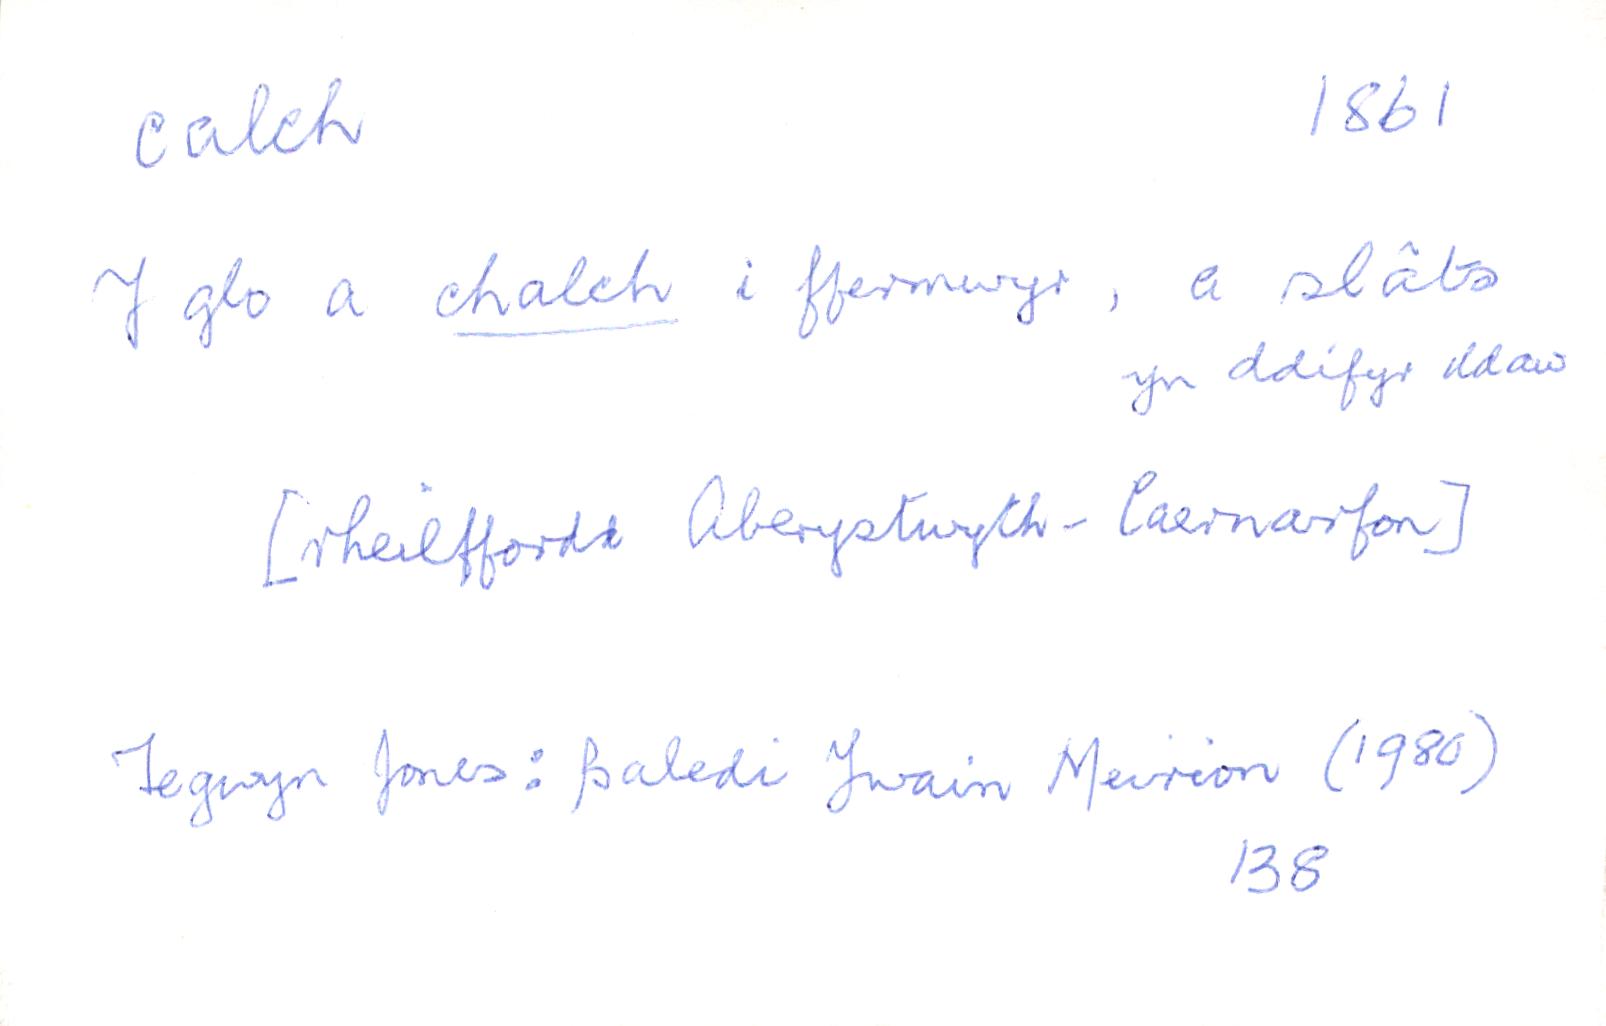 calch 1861
Y glo a chalch i ffermwyr, a slâts
yn ddifyr ddaw
[rheilffordd Aberystwyth - Caernarfon]
Tegwyn Jones: Baledi Ywain Meirion (1980)
138